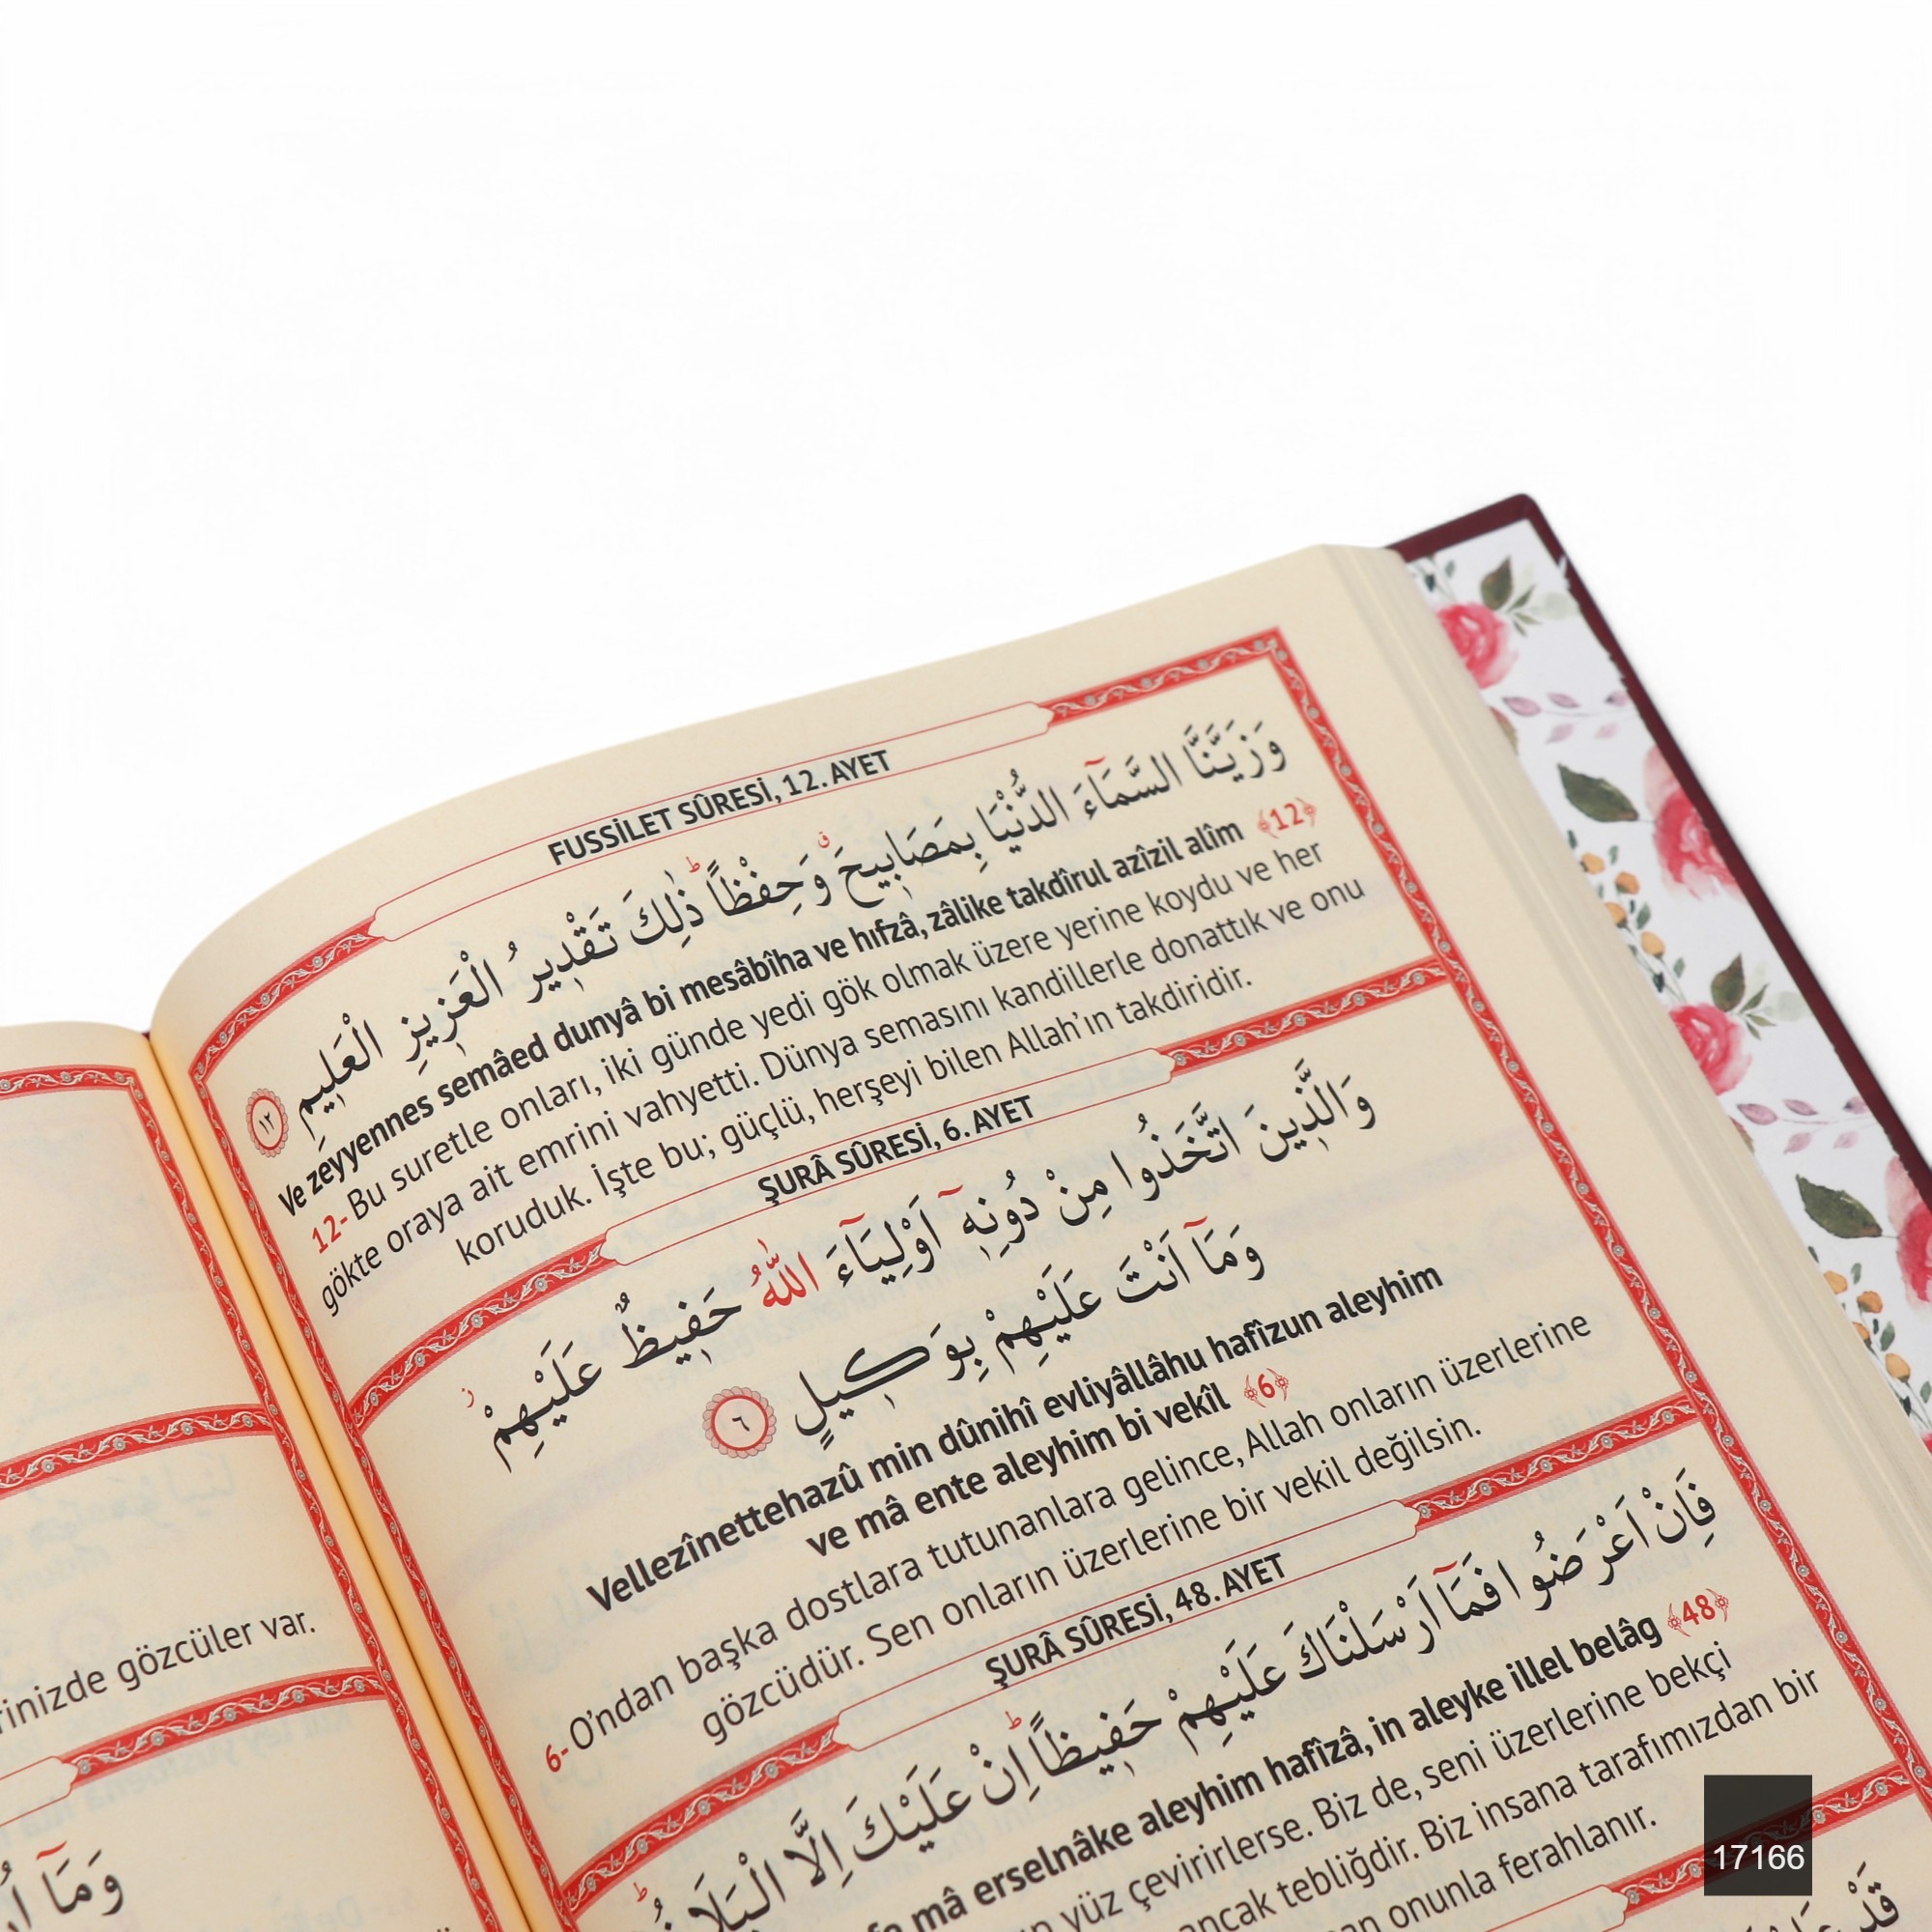 FUSSİLET SÛRESİ, 12. AYET
وَزَيَّنَّا السَّمَآءَ الدُّنْيَا بِمَصَابٖيحَ وَحِفْظًا ذٰلِكَ تَقْدٖيرُ الْعَزٖيزِ الْعَلٖيمِ ١٢
Ve zeyyennes semâed dunyâ bi mesâbîha ve hıfzâ, zâlike takdîrul azîzil alîm ﴾12﴿
12- Bu suretle onları, iki günde yedi gök olmak üzere yerine koydu ve her
gökte oraya ait emrini vahyetti. Dünya semasını kandillerle donattık ve onu
koruduk. İşte bu; güçlü, herşeyi bilen Allah’ın takdiridir.
ŞURÂ SÛRESİ, 6. AYET
وَالَّذٖينَ اتَّخَذُوا مِنْ دُونِهٖٓ اَوْلِيَآءَ اللّٰهُ حَفٖيظٌ عَلَيْهِمْ
وَمَآ اَنْتَ عَلَيْهِمْ بِوَكٖيلٍ ٦
Vellezînettehazû min dûnihî evliyâllâhu hafîzun aleyhim
ve mâ ente aleyhim bi vekîl ﴾6﴿
6- O’ndan başka dostlara tutunanlara gelince, Allah onların üzerlerine
gözcüdür. Sen onların üzerlerine bir vekil değilsin.
ŞURÂ SÛRESİ, 48. AYET
فَاِنْ اَعْرَضُوا فَمَآ اَرْسَلْنَاكَ عَلَيْهِمْ حَفٖيظًا اِنْ عَلَيْكَ اِلَّا الْبَلَاغُ
mâ erselnâke aleyhim hafîzâ, in aleyke illel belâg ﴾48﴿
yüz çevirirlerse. Biz de, seni üzerlerine bekçi
ancak tebliğdir. Biz insana tarafımızdan bir
onunla ferahlanır.
gözcüler var.
وَمَآ
17166